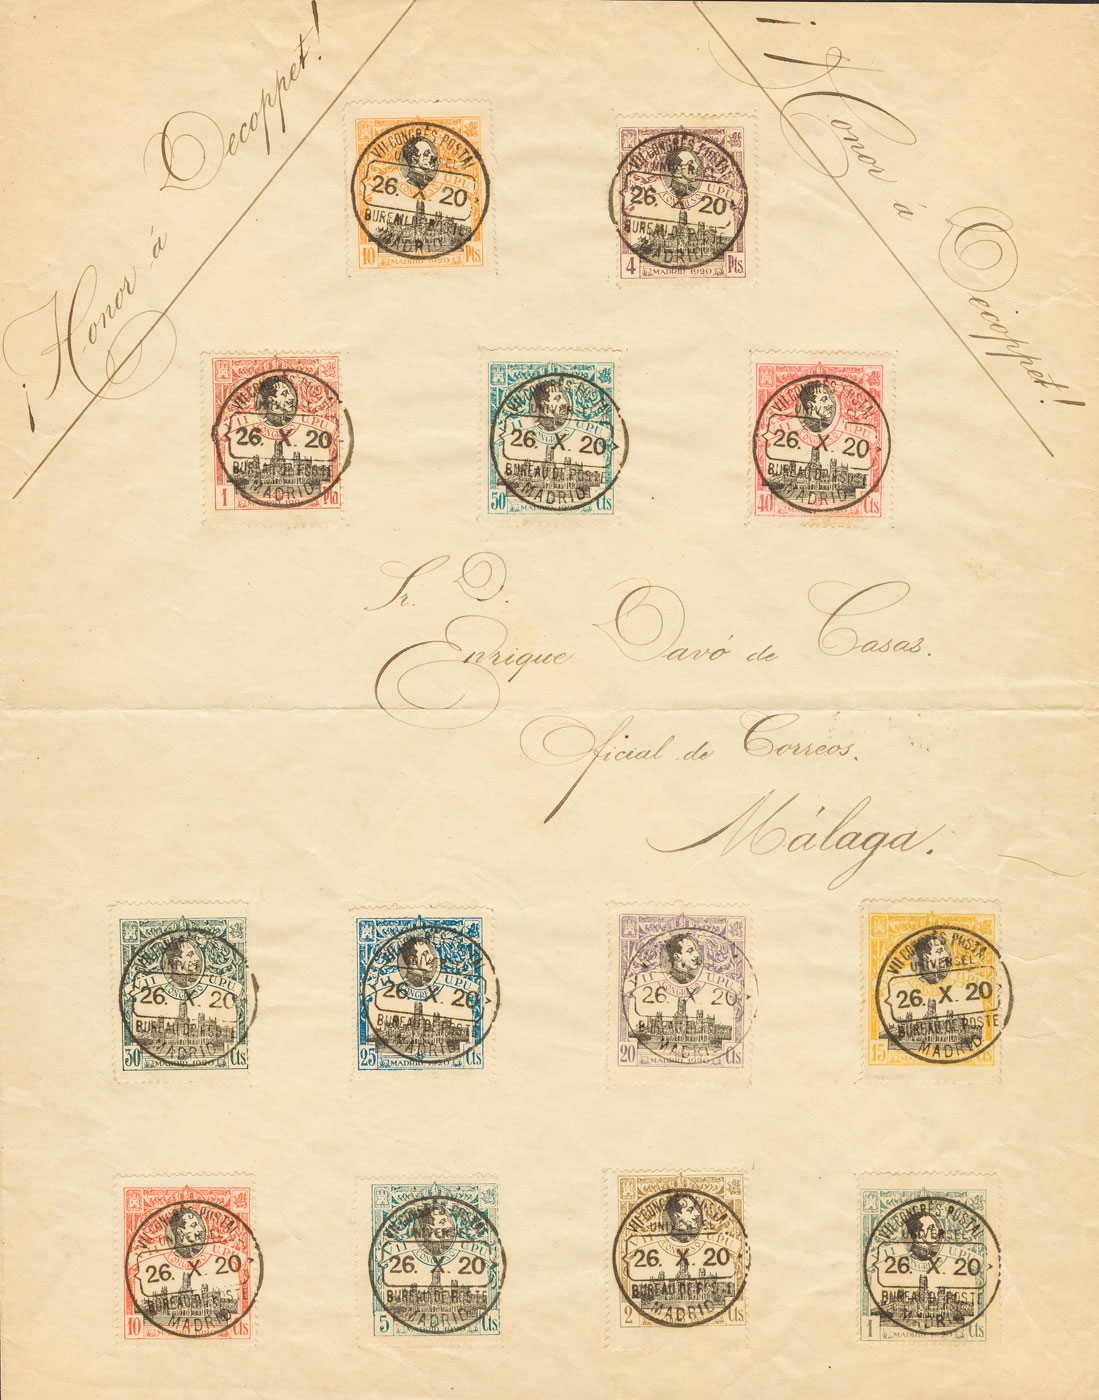 ¡Honor á Decoppet!
¡Honor á Decoppet!
VII CONGRÈS POSTAL
UNIVERSEL
26. X. 20
BUREAU DE POSTE
MADRID
UPU
10 Pts
MADRID 1920
VII CONGRÈS POSTAL
UNIVERSEL
26. X. 20
BUREAU DE POSTE
MADRID
UPU
4 Pts
MADRID 1920
VII CONGRÈS POSTAL
UNIVER
26. X. 20
BUREAU DE POSTE
MADRID
UPU
1 Pta
VII CONGRÈS POSTAL
UNIVER
26. X. 20
BUREAU DE POSTE
MADRID
UPU
50 Cts
MADRID 1920
VII CONGRÈS POSTAL
UNIVER
26. X. 20
BUREAU DE POSTE
MADRID
UPU
40 Cts
Sr. D.
Enrique Davó de Casas.
Oficial de Correos.
Málaga.
26. X. 20
BUREAU DE POSTE
MADRID
UPU
30 Cts
MADRID 1920
26. X. 20
BUREAU DE POSTE
MADRID
UPU
25 Cts
MADRID 1920
26. X. 20
MADRID
UPU
20 Cts
MADRID 1920
VII CONGRÈS POSTAL
UNIVERSEL
26. X. 20
BUREAU DE POSTE
MADRID
15 Cts
VII CONGRÈS POSTAL
UNIVERSEL
26. X. 20
BUREAU DE POSTE
MADRID
UPU
10 Cts
VII CONGRÈS POSTAL
26. X. 20
BUREAU DE POSTE
MADRID
UPU
5 Cts
VII CONGRÈS POSTAL
UNIVERSEL
26. X. 20
BUREAU DE POSTE
MADRID
UPU
2 Cts
VII CONGRÈS POSTAL
UNIVERSEL
26. X. 20
BUREAU DE POSTE
MADRID
UPU
1 Cts
MADRID 1920